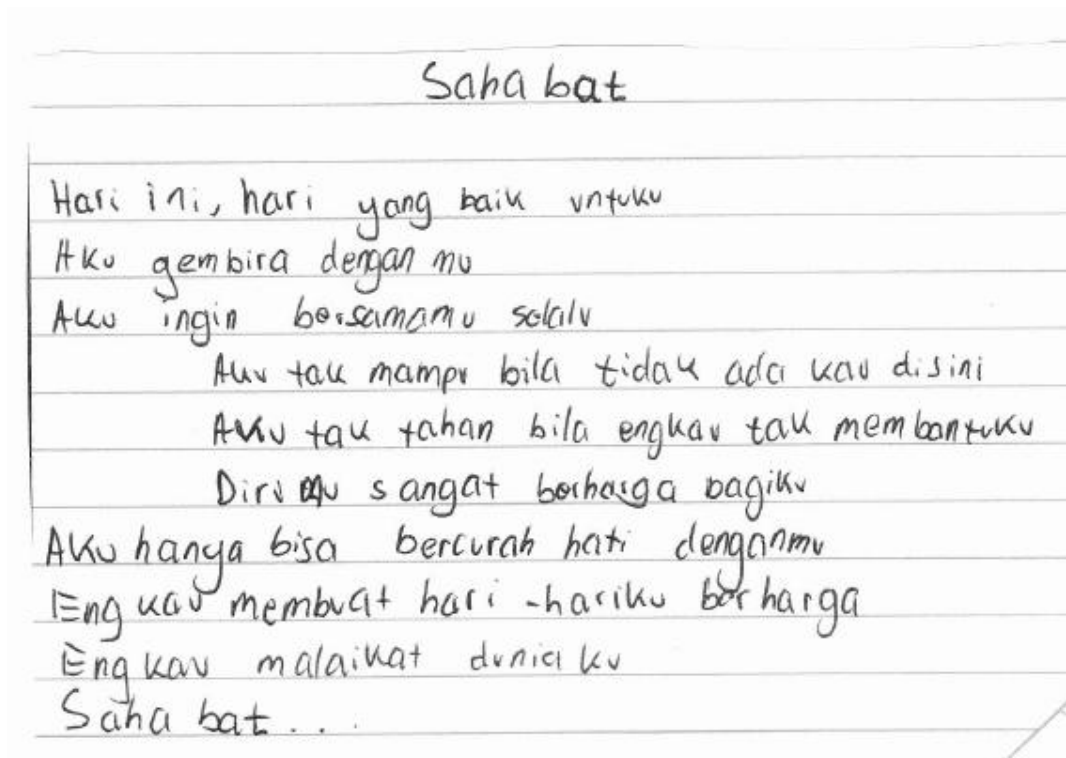 Sahabat
Hari ini, hari yang baik untuku
Aku gembira dengan mu
Aku ingin bersamamu selalu
Aku tak mampu bila tidak ada kau disini
Aku tak tahan bila engkau tak membantuku
Dirimu sangat berharga bagiku
Aku hanya bisa bercurah hati denganmu
Engkau membuat hari-hariku berharga
Engkau malaikat duniaku
Sahabat...